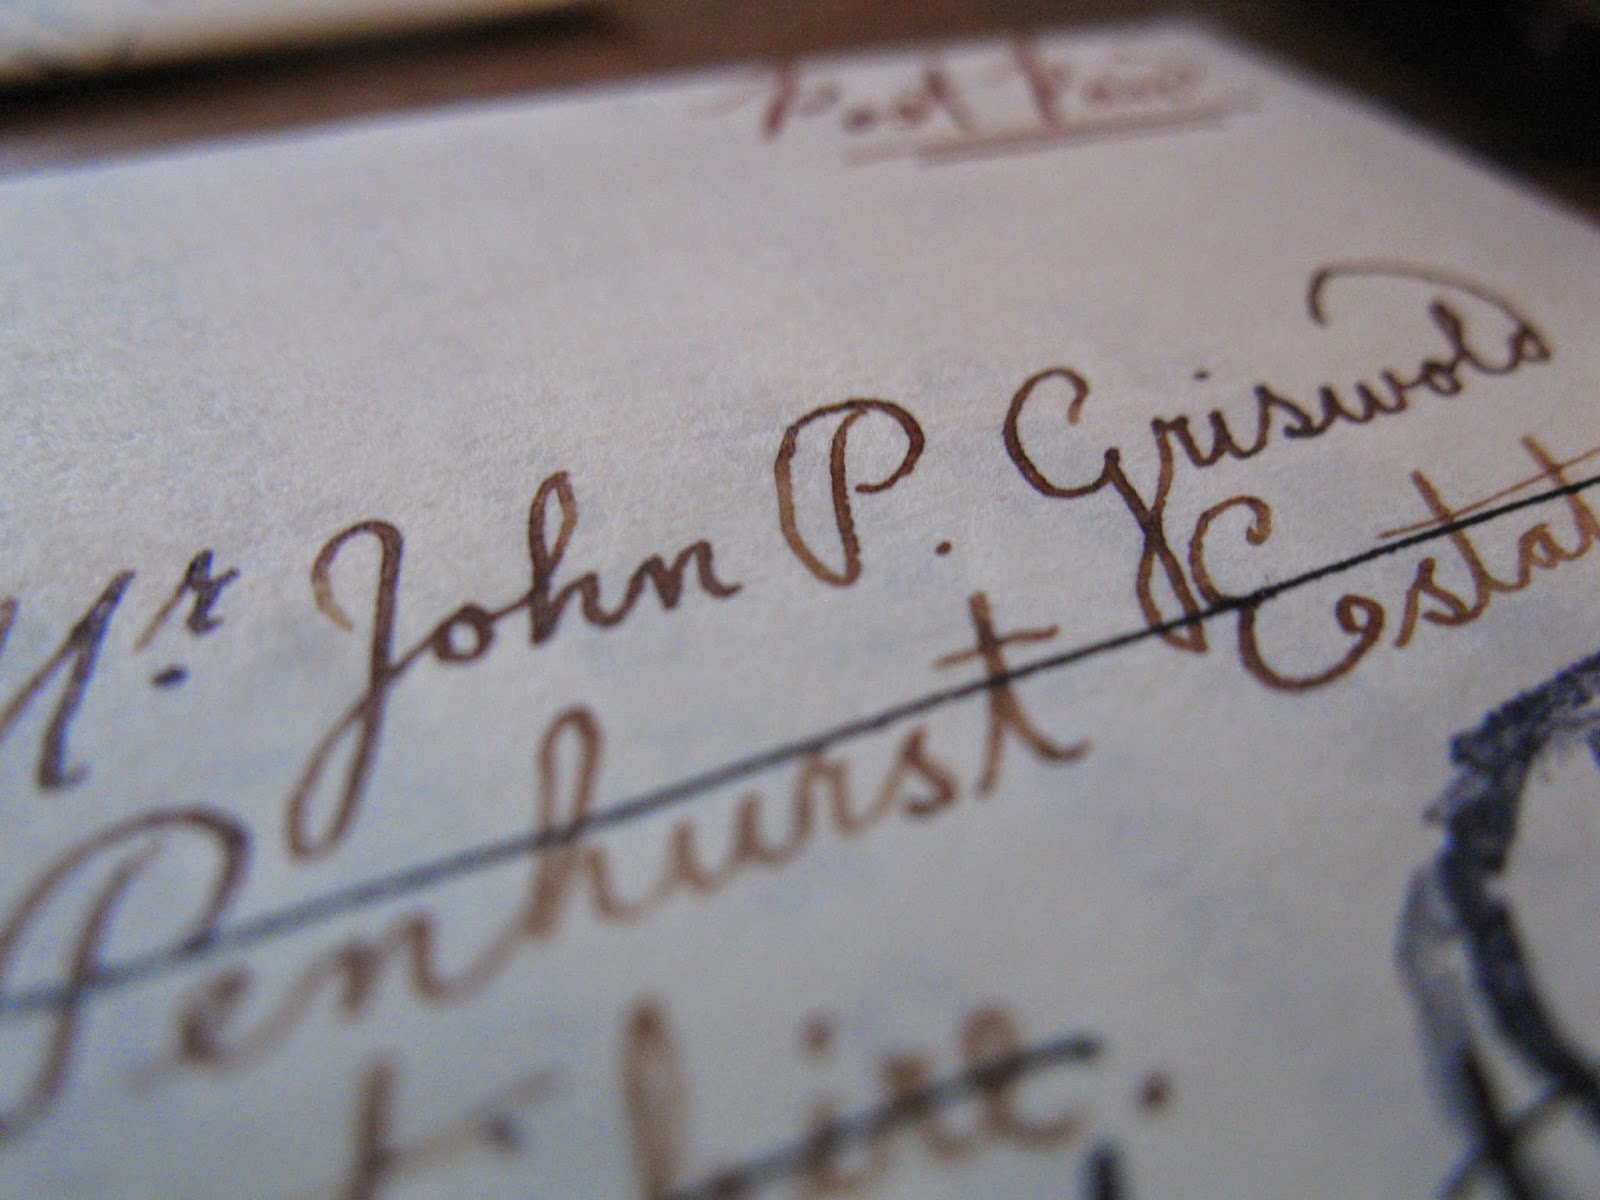 Post Paid
Mr. John P. Griswold
Penhurst Estat